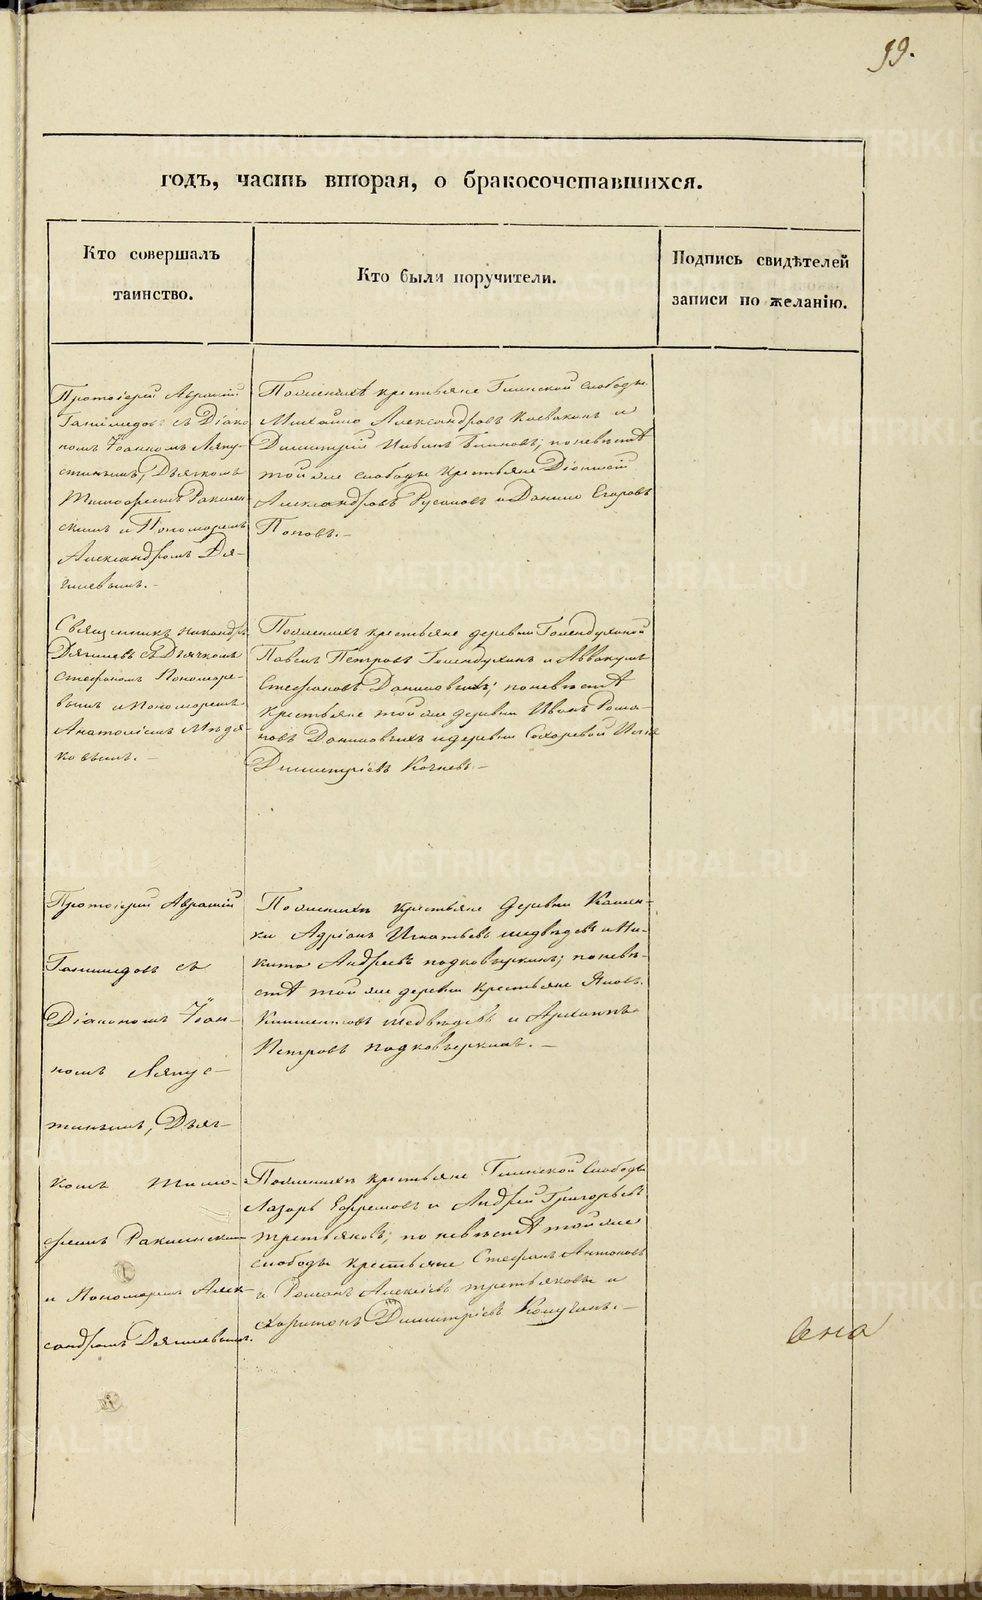 99.
годъ, часть вторая, о бракосочетавшихся.
Кто совершалъ
таинство.
Кто были поручители.
Подпись свидѣтелей
записи по желанію.
Протоіерей Авраамій
съ Діако
номъ Іоанномъ Ляпу-
стинымъ, Дьячкомъ
Тимофеемъ
скимъ и Пономаремъ
Александромъ Дя-
гилевымъ.-
По женихѣ крестьяне Глинской слободы
Михайло Александровъ и
Димитрій; по невѣстѣ
той же слободы крестьяне Діонисій
Александровъ Русаковъ и Данило Егоровъ
Поповъ.-
Священникъ Никандръ
Дягилевъ съ Дьячкомъ
Стефаномъ Пономаре-
вымъ и Пономаремъ
Анатоліемъ
По женихѣ крестьяне деревни Голендухиной
Павелъ Петровъ Голендухинъ и Аввакумъ
Стефановъ Даниловыхъ; по невѣстѣ
крестьяне той же деревни Иванъ Рома-
новъ Даниловыхъ и деревни Сохаревой
Димитріевъ Кочневъ.-
Протоіерей Авраамій
съ
Діакономъ Іоан-
номъ Ляпус-
тинымъ, Дьяч-
комъ Тимо-
феемъ
и Пономаремъ Алек-
сандромъ Дягилевымъ.
По женихѣ крестьяне деревни Камен-
ки Адріанъ Игнатьевъ медвѣдевъ и Ни-
кита Андреевъ подковыркинъ; по невѣ-
стѣ той же деревни крестьяне Яковъ
Климентовъ медвѣдевъ и
Петровъ подковыркинъ.-
По женихѣ крестьяне Глинской слободы
Лазарь Ефремовъ и Андрей Григорьевъ
третьяковъ; по невѣстѣ той же
слободы крестьяне Стефанъ Антоновъ
и Романъ Алексѣевъ третьяковы и
Харитонъ Димитріевъ.-